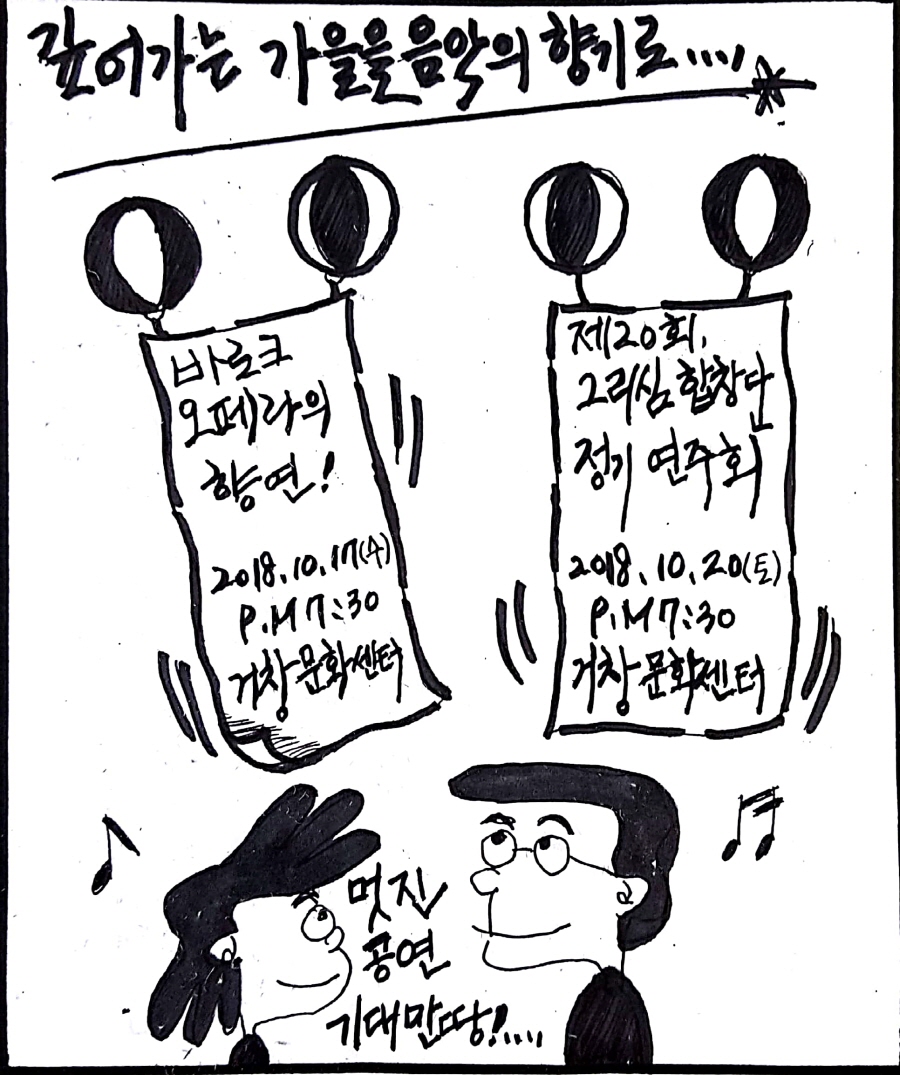 깊어가는 가을을 음악의 향기로....
바로크
오페라의
향연!
2018.10.17(수)
P.M 7:30
거창문화센터
제20회.
그리심 합창단
정기 연주회
2018.10.20(토)
P.M 7:30
거창문화센터
멋진
공연
기대만땅!....